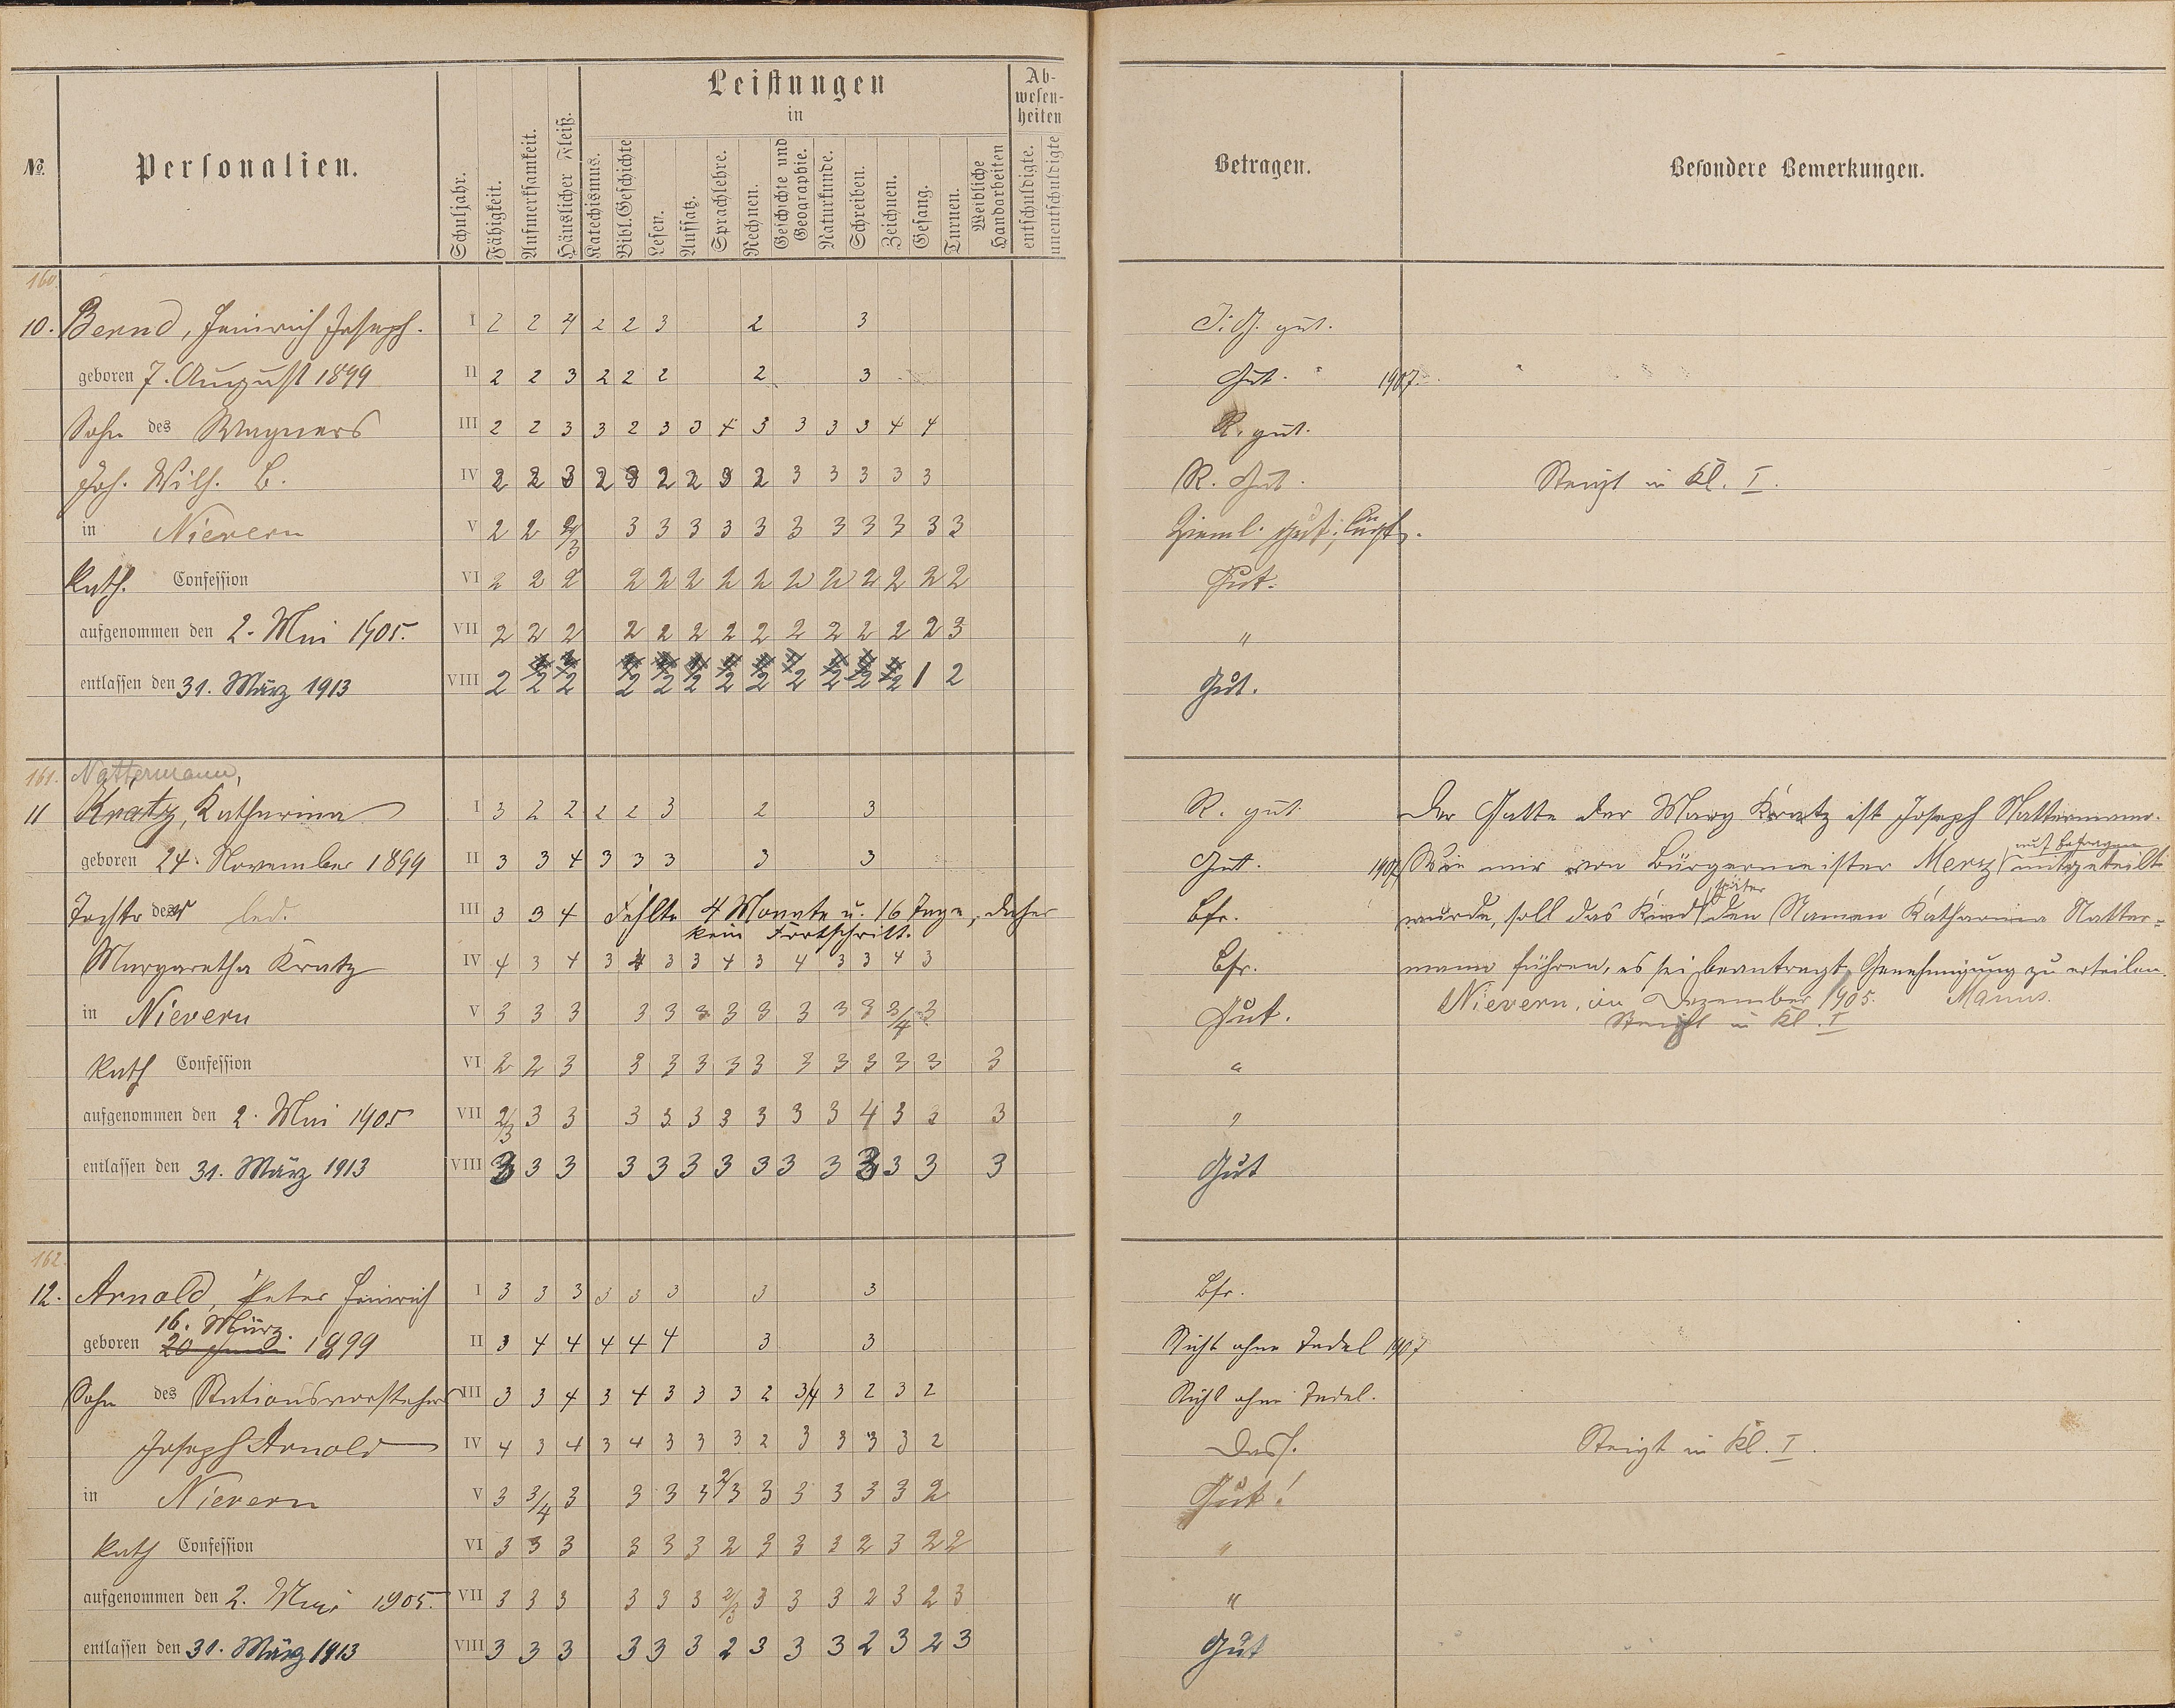 No. Personalien. Schuljahr. Fähigkeit. Aufmerksamkeit. Häuslicher Fleiß. Leistungen in Ab-wesen-heiten
Katechismus. Bibl. Geschichte Lesen. Aufsatz. Sprachlehre. Rechnen. Geschichte und Geographie. Naturkunde. Schreiben. Zeichnen. Gesang. Turnen. Weibliche Handarbeiten entschuldigte. unentschuldigte
Betragen. Besondere Bemerkungen.
160.
10. Bernd, Heinrich Joseph. I 2 2 4 2 2 3 2 3 gut.
geboren 7. August 1899 II 2 2 3 2 2 2 2 3 Gut. 1907.
Sohn des Wagners III 2 2 3 3 2 3 3 4 3 3 3 3 4 4 R. gut.
Joh. Wilh. B. IV 2 2 3 2 3 2 2 3 2 3 3 3 3 3 R. Gut. Steigt in Kl. I.
in Nievern V 2 2 2/3 3 3 3 3 3 3 3 3 3 3 3 Zieml. gut;
Kath. Confession VI 2 2 2 2 2 2 2 2 2 2 2 2 2 2 Gut.
aufgenommen den 2. Mai 1905. VII 2 2 2 2 2 2 2 2 2 2 2 2 2 3 "
entlassen den 31. März 1913 VIII 2 2 2 2 2 2 2 2 2 2 2 2 1 2 Gut.
161. Nattermann,
11 Kratz, Katharina I 3 2 2 2 2 3 2 3 R. gut Der Gatte der Marg Kratz ist Joseph Nattermann.
geboren 24. November 1899 II 3 3 4 3 3 3 3 3 Gut. 1907 Wie mir von Bürgermeister Merz auf Befragen mitgeteilt
Tochter der led. III 3 3 4 Fehlte 4 Monate u. 16 Tage, daher kein Fortschritt. Bfr. wurde, soll das Kind später den Namen Katharina Natter-
Margaretha Kratz IV 4 3 4 3 4 3 3 4 3 4 3 3 4 3 Bfr. mann führen, es sei beantragt, Genehmigung zu erteilen.
in Nievern V 3 3 3 3 3 3 3 3 3 3 3 3/4 3 Gut. Nievern, im Dezember 1905. Manns.
Steigt in Kl. I
Kath Confession VI 2 2 3 3 3 3 3 3 3 3 3 3 3 3 "
aufgenommen den 2. Mai 1905 VII 2/3 3 3 3 3 3 3 3 3 3 4 3 3 3 "
entlassen den 31. März 1913 VIII 3 3 3 3 3 3 3 3 3 3 3 3 3 3 Gut
162.
12. Arnold, Peter Heinrich I 3 3 3 3 3 3 3 3 Bfr.
16. März.
geboren 20 1899 II 3 4 4 4 4 4 3 3 Nicht ohne Tadel 1907
Sohn des Stationsvorstehers III 3 3 4 3 4 3 3 3 2 3/4 3 2 3 2 Nicht ohne Tadel.
Joseph Arnold IV 4 3 4 3 4 3 3 3 2 3 3 3 3 2 Dass. Steigt in Kl. I.
in Nievern V 3 3/4 3 3 3 3 2/3 3 3 3 3 3 2 Gut!
Kath Confession VI 3 3 3 3 3 3 2 3 3 3 2 3 2 2 "
aufgenommen den 2. Mai 1905. VII 3 3 3 3 3 3 2/3 3 3 3 2 3 2 3 "
entlassen den 31. März 1913 VIII 3 3 3 3 3 3 2 3 3 3 2 3 2 3 Gut